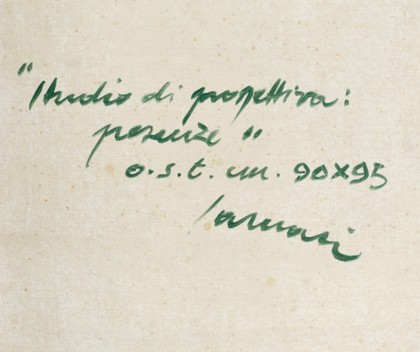 "Studio di prospettiva:
presenze"
o.s.t. cm. 90x95
Sarnari